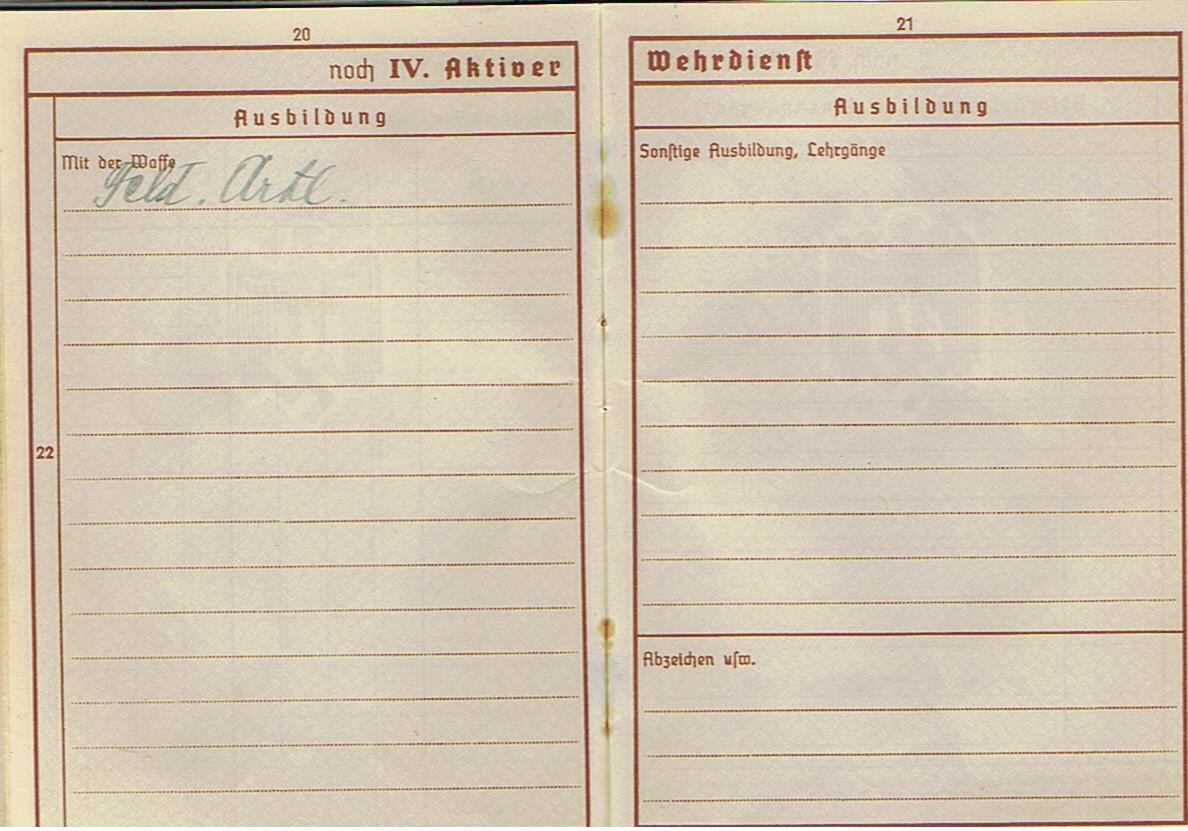 20
noch IV. Aktiver
Ausbildung
Mit der Waffe
Feld. Artl.
22
21
Wehrdienst
Ausbildung
Sonstige Ausbildung, Lehrgänge
Abzeichen usw.